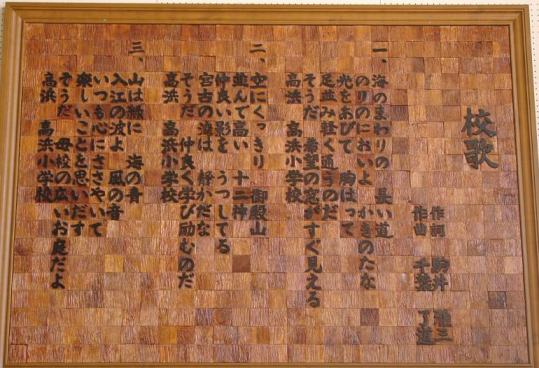 校歌
作詞 駒井 雅三
作曲 千葉 了道
一、海のまわりの 長い道
のりのにおいよ かきのたな
光をあびて 胸はって
足並み軽く通うのだ
そうだ 希望の窓がすぐ見える
高浜 高浜小学校
二、空にくっきり 御殿山
並んで高い 十二神
仲良い影を うつしてる
宮古の湾は 静かだな
そうだ 仲良く学び励むのだ
高浜 高浜小学校
三、山は緑に 海の青
入江の波よ 風の音
いつも心にささやいて
楽しいことを思いだす
そうだ 母校の広いお庭だよ
高浜 高浜小学校